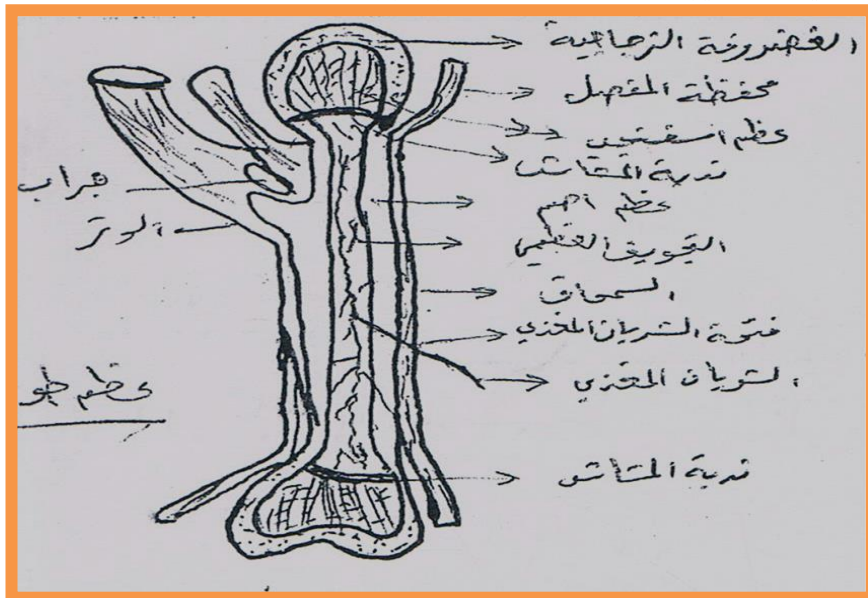 الغضروفة الزجاجية
محفظة المفصل
عظم اسفنجي
ندبة المشاش
عظم أصم
التجويف العظمي
السمحاق
فتحة الشريان المغذي
الشريان المغذي
ندبة المشاش
جراب
الوتر
عظم طو